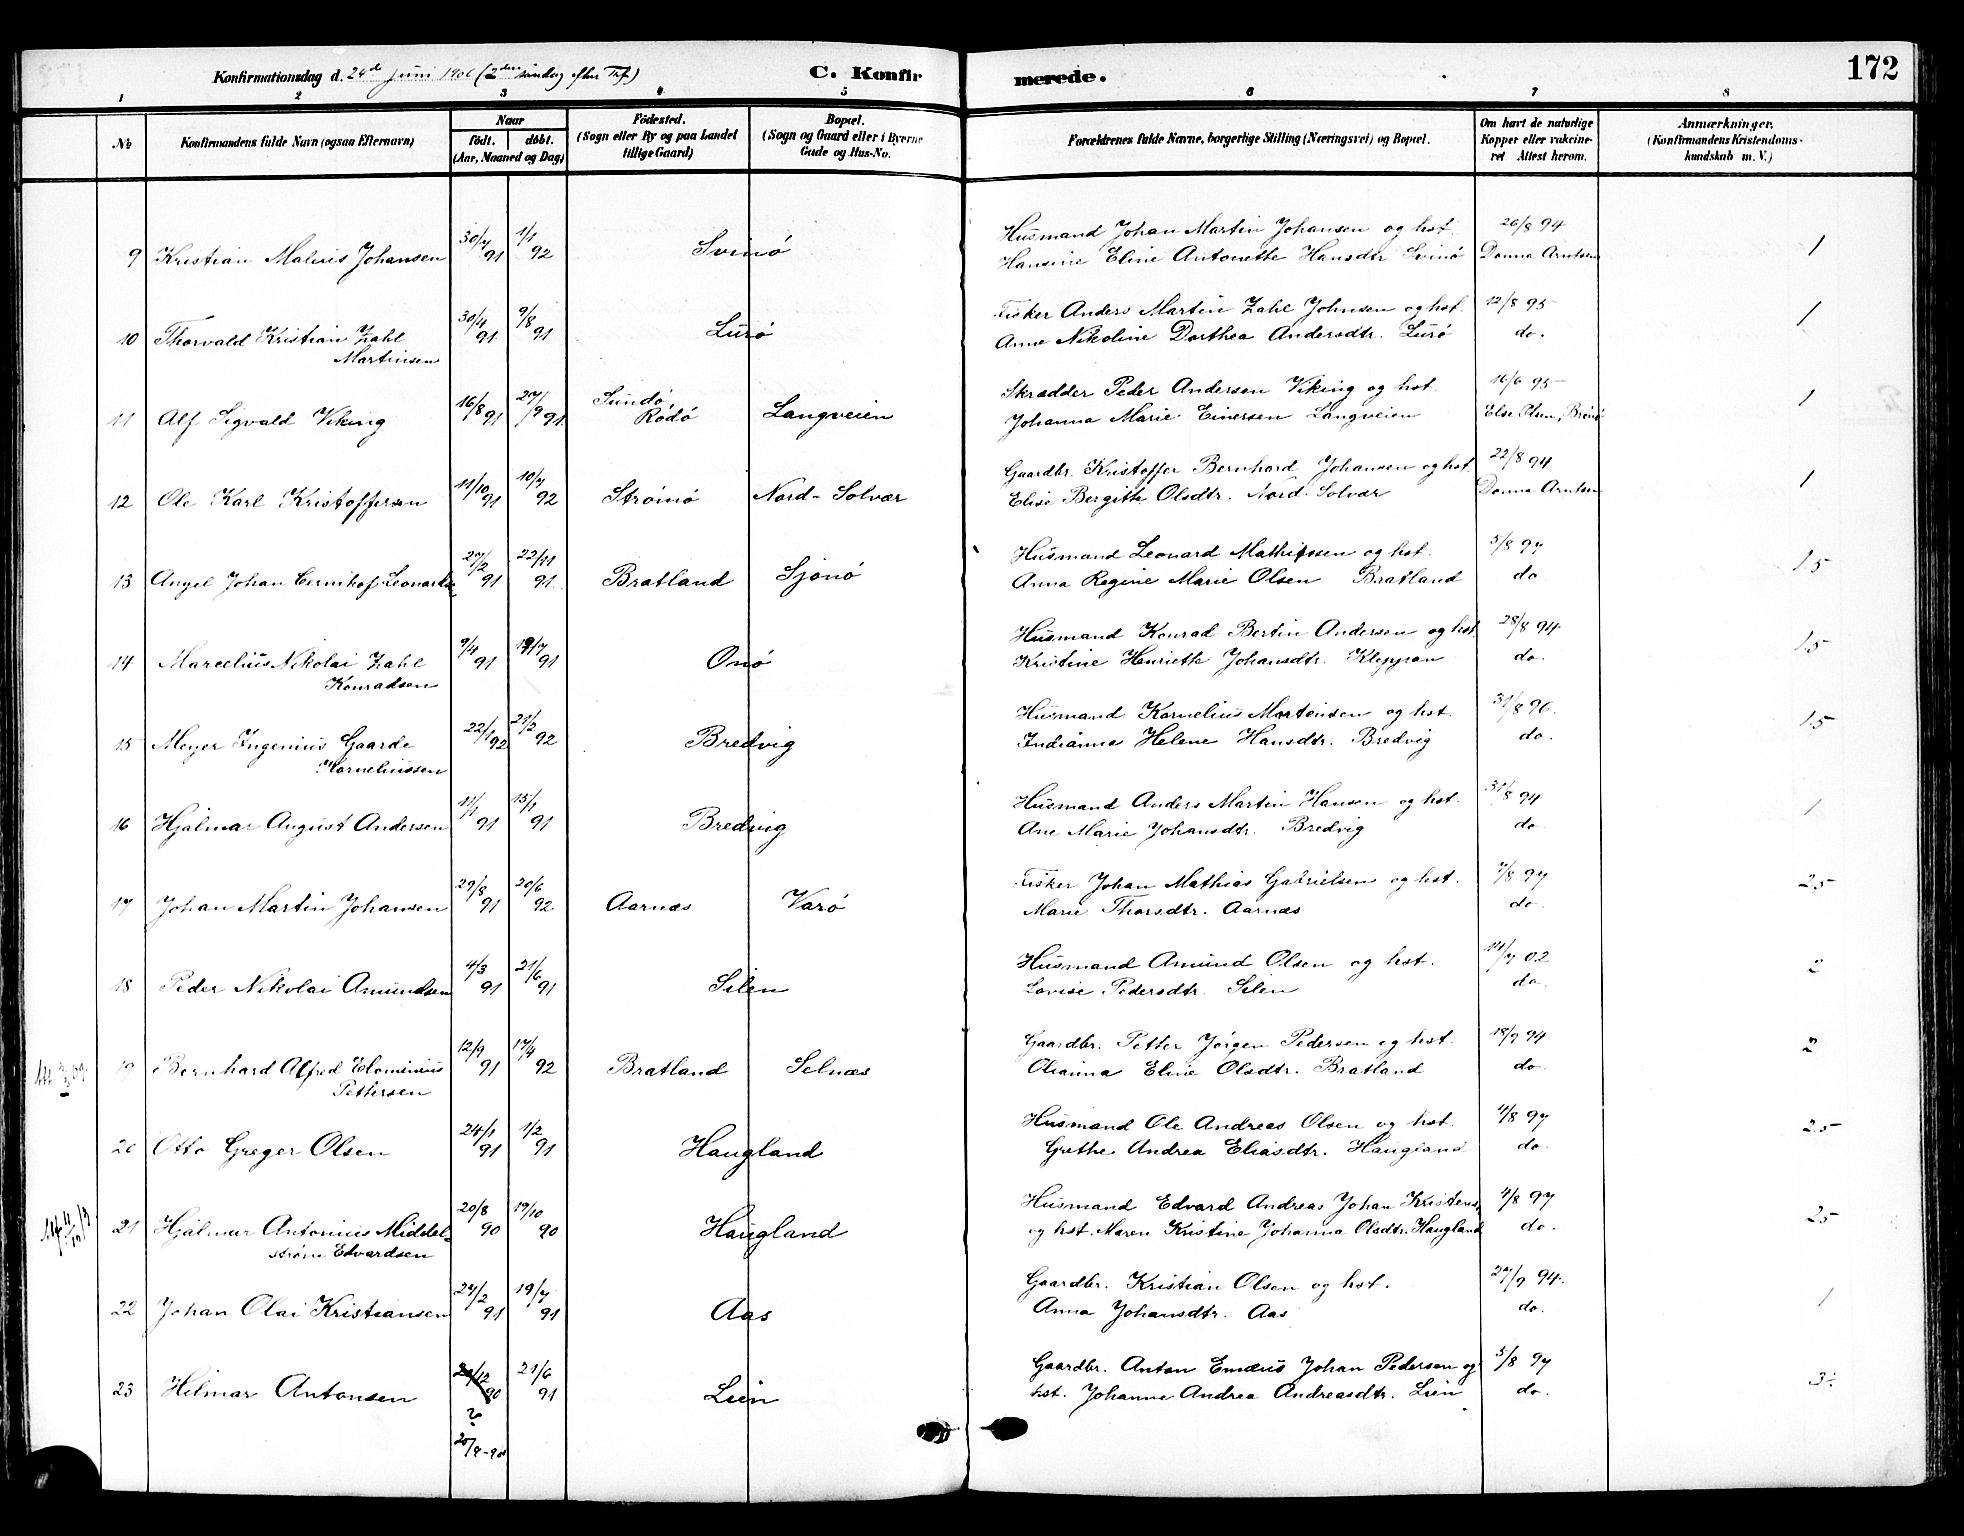 172
Konfirmationsdag d. 24de Juni 1906 (2den søndag efter Tref.)
C. Konfirmerede.
1 2 3 4 5 6 7 8
No
Konfirmandens fulde Navn (ogsaa Efternavn)
Naar
født. døbt.
(Aar, Maaned og Dag)
Fødested.
(Sogn eller By og paa Landet
tillige Gaard)
Bopæl.
(Sogn og Gaard eller i Byerne
Gade og Hus-No.
Forældrenes fulde Navne, borgerlige Stilling (Næringsvei) og Bopæl.
Om havt de naturlige
Kopper eller vakcine-
ret Attest herom.
Anmærkninger,
(Konfirmandens Kristendoms-
kundskab m. V.)
Husmand Johan Martin Johansen og hst. 26/8 94
9 Kristian Malius Johansen 30/7 91 1/1 92 Svinø Hansine Eline Antonette Hansdtr Svinø Donna Arntsen 1
Fisker Anders Martin Zahl Johnsen og hst. 12/8 95
10 Thorvald Kristian Zahl 30/4 91 9/8 91 Lurø Anne Nikoline Dorthea Andersdtr. Lurø do. 1
Martinsen
Skrædder Peder Andersen Viking og hst. 16/6 95
11 Alf Sigvald Viking 16/8 91 27/9 91. Sundø, Rødø Langveien Johanna Marie Einersen Langveien Else Olsen, Brønø 1
Gaardbr. Kristoffer Bernhard Johansen og hst. 22/8 94
12 Ole Karl Kristoffersen 11/10 91 10/7 92 Strømø Nord-Solvær Elise Bergitte Olsdtr. Nord-Solvær Donna Arntsen 1
Husmand Leonard Mathissen og hst. 5/8 97
13 Angel Johan Leonards 27/2 91 22/11 91. Bratland Sjonø Anna Regine Marie Olsen Bratland do 1.5
Husmand Konrad Bertin Andersen og hst. 28/8 94.
14 Marcelius Nikolai Zahl 9/4 91 19/7 91 Onø Kristine Henriette Johansdtr. Kleppan do. 1.5
Konradsen
Husmand Kornelius Mortensen og hst. 31/8 96.
15 Meyer Ingenius Gaarde 22/1 92 21/2 92 Bredvig Indianna Helene Hansdtr. Bredvig do. 1.5
Korneliussen
Husmand Anders Martin Hansen og hst. 31/8 94
16 Hjalmar August Andersen 11/1 91 15/1 91 Bredvig Ane Marie Johansdtr. Bredvig do 1
Fisker Johan Mathias Gabrielsen og hst. 7/8 97
17 Johan Martin Johansen 29/8 91 20/6 92. Aarnæs Varø Marie Thorsdtr. Aarnæs do. 2.5
Husmand Amund Olsen og hst. 14/7 02
18 Peder Nikolai Amundsen 4/3 91 21/6 91 Silen Lovise Pedersdtr. Silen do. 2
Gaardbr. Petter Jørgen Pedersen og hst. 18/9 94
Att 3/3 09. 19 Bernhard Alfred Elominius 12/9 91 17/4 92 Bratland Selnæs Olianna Eline Olsdtr. Bratland do. 2
Pettersen
Husmand Ole Andreas Olsen og hst. 4/8 97
20 Otto Greger Olsen 24/1 91 1/2 91 Haugland Grethe Andrea Eliasdtr. Haugland do. 2.5
Husmand Edvard Andreas Johan Kristens. 4/8 97
21 Hjalmar Antonius Middel- 20/8 90 19/10 90 Haugland og hst. Maren Kristine Johanna Olsdtr. Haugland do. 2.5
strøm Edvardsen
Gaardbr. Kristian Olsen og hst. 27/9 94.
22 Johan Olai Kristiansen 27/2 91 19/7 91 Aas Anna Johansdtr. Aas do. 1
Gaardbr. Anton Emæus Johan Pedersen og 5/8 97
23 Hilmar Antonsen 29/12 90 21/6 91 Lien hst. Johanne Andrea Andreasdtr. Lien do. 3÷